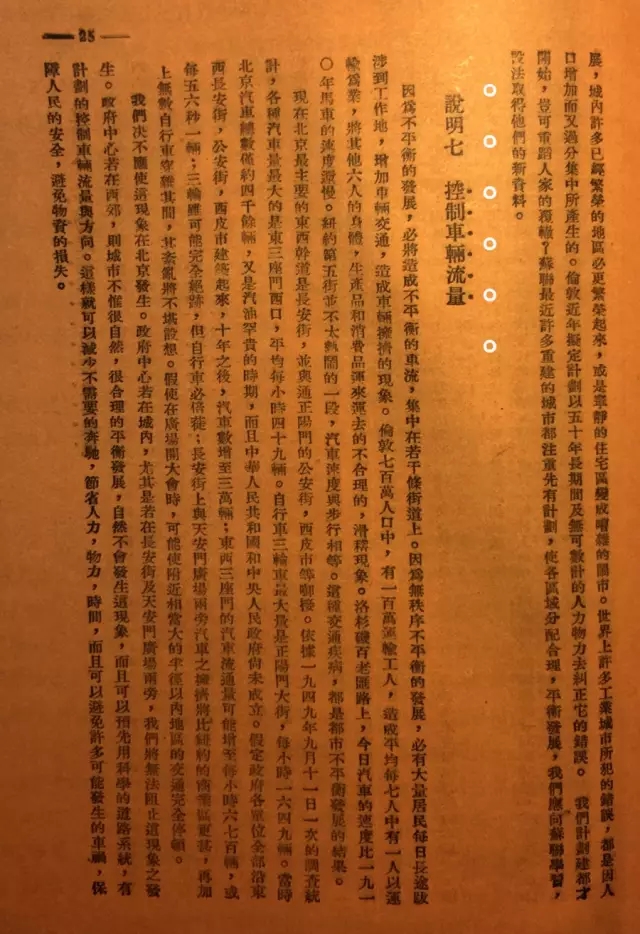 展，城內許多已經繁榮的地區必更繁榮起來，或是寧靜的住宅區變成嘈雜的鬧市。世界上許多工業城市所犯的錯誤，都是因人
口增加而又過分集中所產生的。倫敦近年擬定計劃以五十年長期間及無可數計的人力物力去糾正它的錯誤。我們計劃建都才
開始，豈可重蹈人家的覆轍？蘇聯最近許多重建的城市都注重先有計劃，使各區域分配合理，平衡發展，我們應向蘇聯學習，
設法取得他們的新資料。
說明七 控制車輛流量
因為不平衡的發展，必將造成不平衡的車流，集中在若干條街道上。因為無秩序不平衡的發展，必有大量居民每日長途跋
涉到工作地，增加車輛交通，造成車輛擁擠的現象。倫敦七百萬人口中，有一百萬運輸工人，造成平均每七人中有一人以運
輸為業，將其他六人的身體，生產品和消費品運來運去的不合理的，滑稽現象。洛杉磯百老匯路上，今日汽車的速度比一九一
〇年馬車的速度還慢。紐約第五街並不太熱鬧的一段，汽車速度與步行相等。這種交通疾病，都是都市不平衡發展的結果。
現在北京最主要的東西幹道是長安街，並與通正陽門的公安街，西皮市等啣接。依據一九四九年九月十一日一次的調查統
計，各種汽車量最大的是東三座門西口，平均每小時四十九輛。自行車三輪車最大量是正陽門大街，每小時一六四九輛。當時
北京汽車總數僅約四千餘輛，又是汽油罕貴的時期，而且中華人民共和國和中央人民政府尚未成立。假定政府各單位全部沿東
西長安街，公安街，西皮市建築起來，十年之後，汽車數增至三萬輛；東西三座門的汽車流通量可能增至每小時六七百輛，或
每五六秒一輛；三輪雖可能完全絕跡，但自行車必倍蓰；長安街上與天安門廣場兩旁汽車之擁擠將比紐約的商業區更甚，再加
上無數自行車穿雜其間，其紊亂將不堪設想。假使在廣場開大會時，可能使附近相當大的半徑以內地區的交通完全停頓。
我們決不應使這現象在北京發生。政府中心若在城內，尤其是若在長安街及天安門廣場兩旁，我們將無法阻止這現象之發
生。政府中心若在西郊，則城市不惟很自然，很合理的平衡發展，自然不會發生這現象，而且可以預先用科學的道路系統，有
計劃的控制車輛流量與方向。這樣就可以減少不需要的奔馳，節省人力，物力，時間，而且可以避免許多可能發生的車禍，保
障人民的安全，避免物資的損失。
25